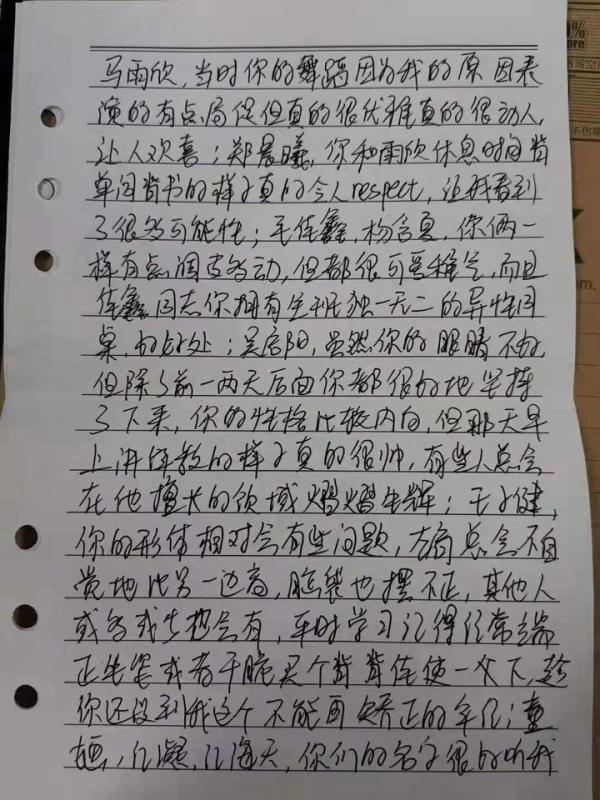 马雨欣,当时你的舞蹈因为我的原因表
演的有点局促但真的很优雅真的很动人,
让人欢喜;郑晨曦,你和雨欣休息时间背
单词背书的样子真的令人respect,让我看到
了很多可能性;毛佳鑫,杨含夏,你俩一
样有点调皮多动,但都很可爱稚气,而且
佳鑫同志你拥有全班独一无二的异性同
桌,好好处;吴启阳,虽然你的眼睛不好,
但除了前一两天后面你都很好地坚持
了下来,你的性格比较内向,但那天早
上讲佛教的样子真的很帅,有些人总会
在他擅长的领域熠熠生辉;王子健,
你的形体相对会有些问题,左肩总会不自
觉地比另一边高,脑袋也摆不正,其他人
或多或少都会有,平时学习记得经常端
正坐姿或者干脆买个背背佳使一次下,趁
你还没到我这个不能再矫正的年纪;
你们的名字很好听我
80%
More